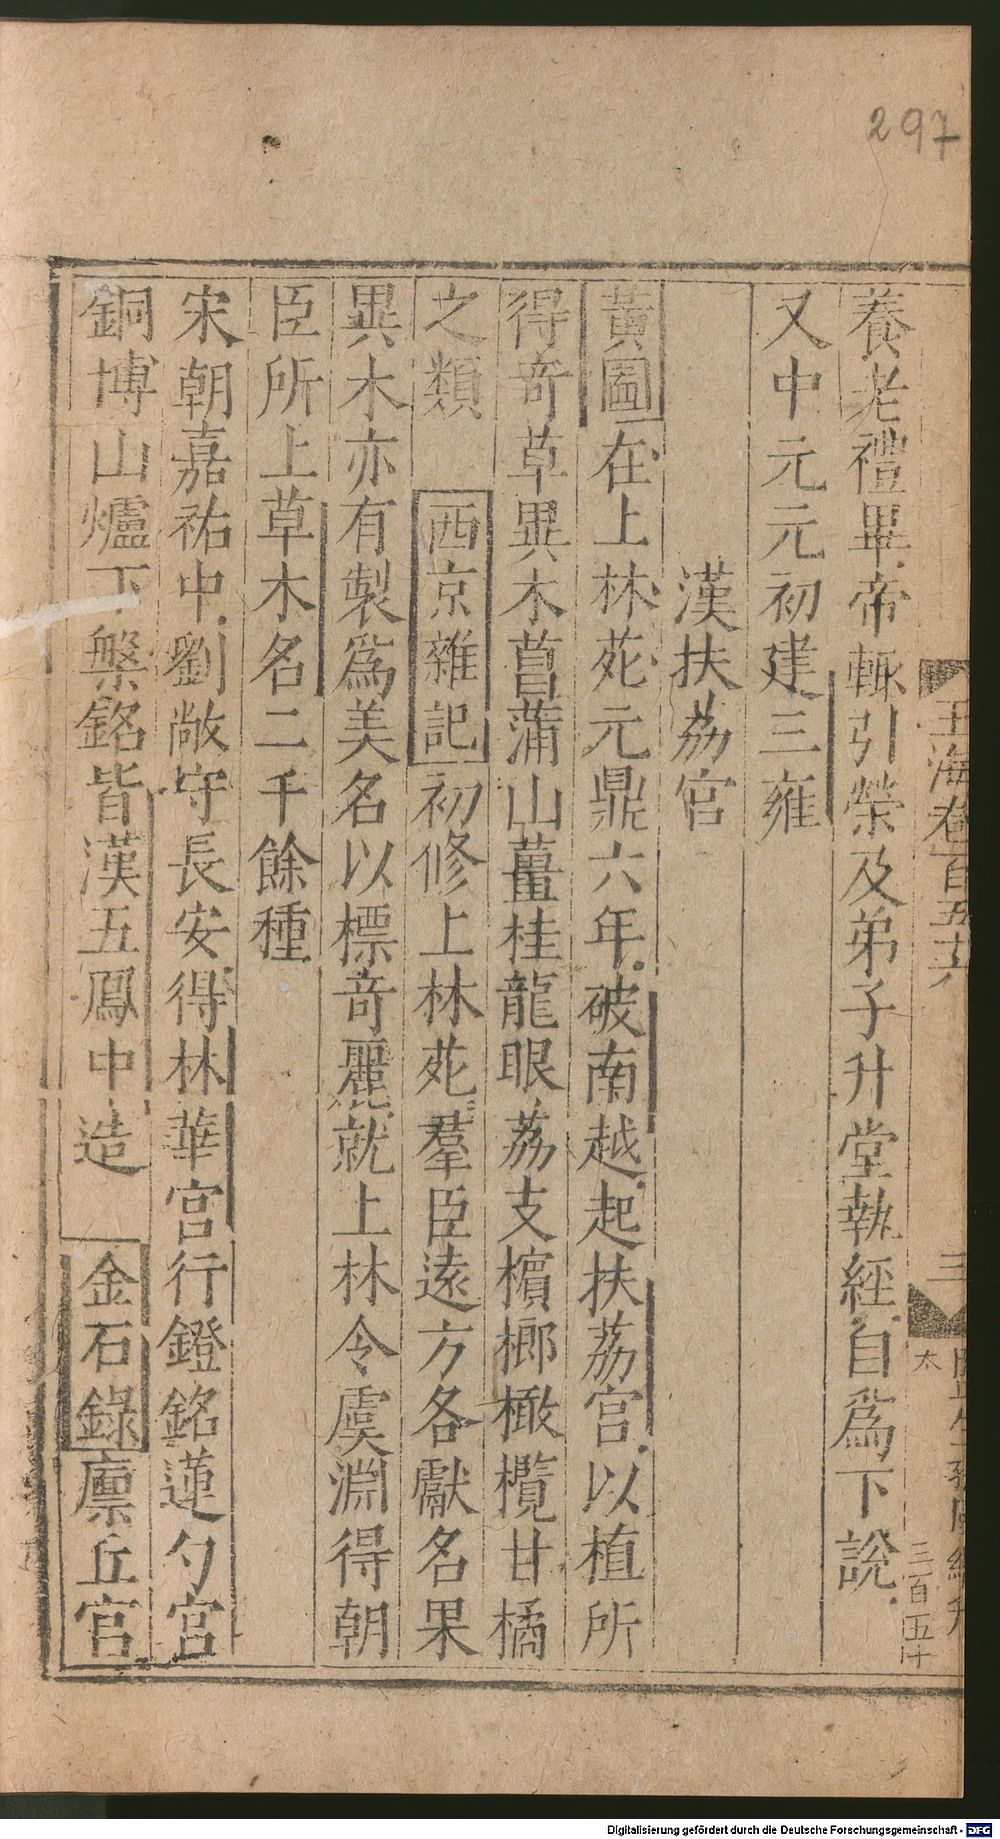 297
養老禮畢帝輒引榮及弟子升堂執經自爲下說
又中元元初建三雍
漢扶荔宮
黃圖在上林苑元鼎六年破南越起扶荔宮以植所
得奇草異木菖蒲山薑桂龍眼荔支檳榔橄欖甘橘
之類 西京雜記初修上林苑羣臣遠方各獻名果
異木亦有製爲美名以標奇麗就上林令虞淵得朝
臣所上草木名二千餘種
宋朝嘉祐中劉敞守長安得林華宮行鐙銘蓮勺宮
銅博山爐下槃銘皆漢五鳳中造 金石錄廪丘宮
玉海卷百五十六
三
太
三百五十
Digitalisierung gefördert durch die Deutsche Forschungsgemeinschaft - DFG